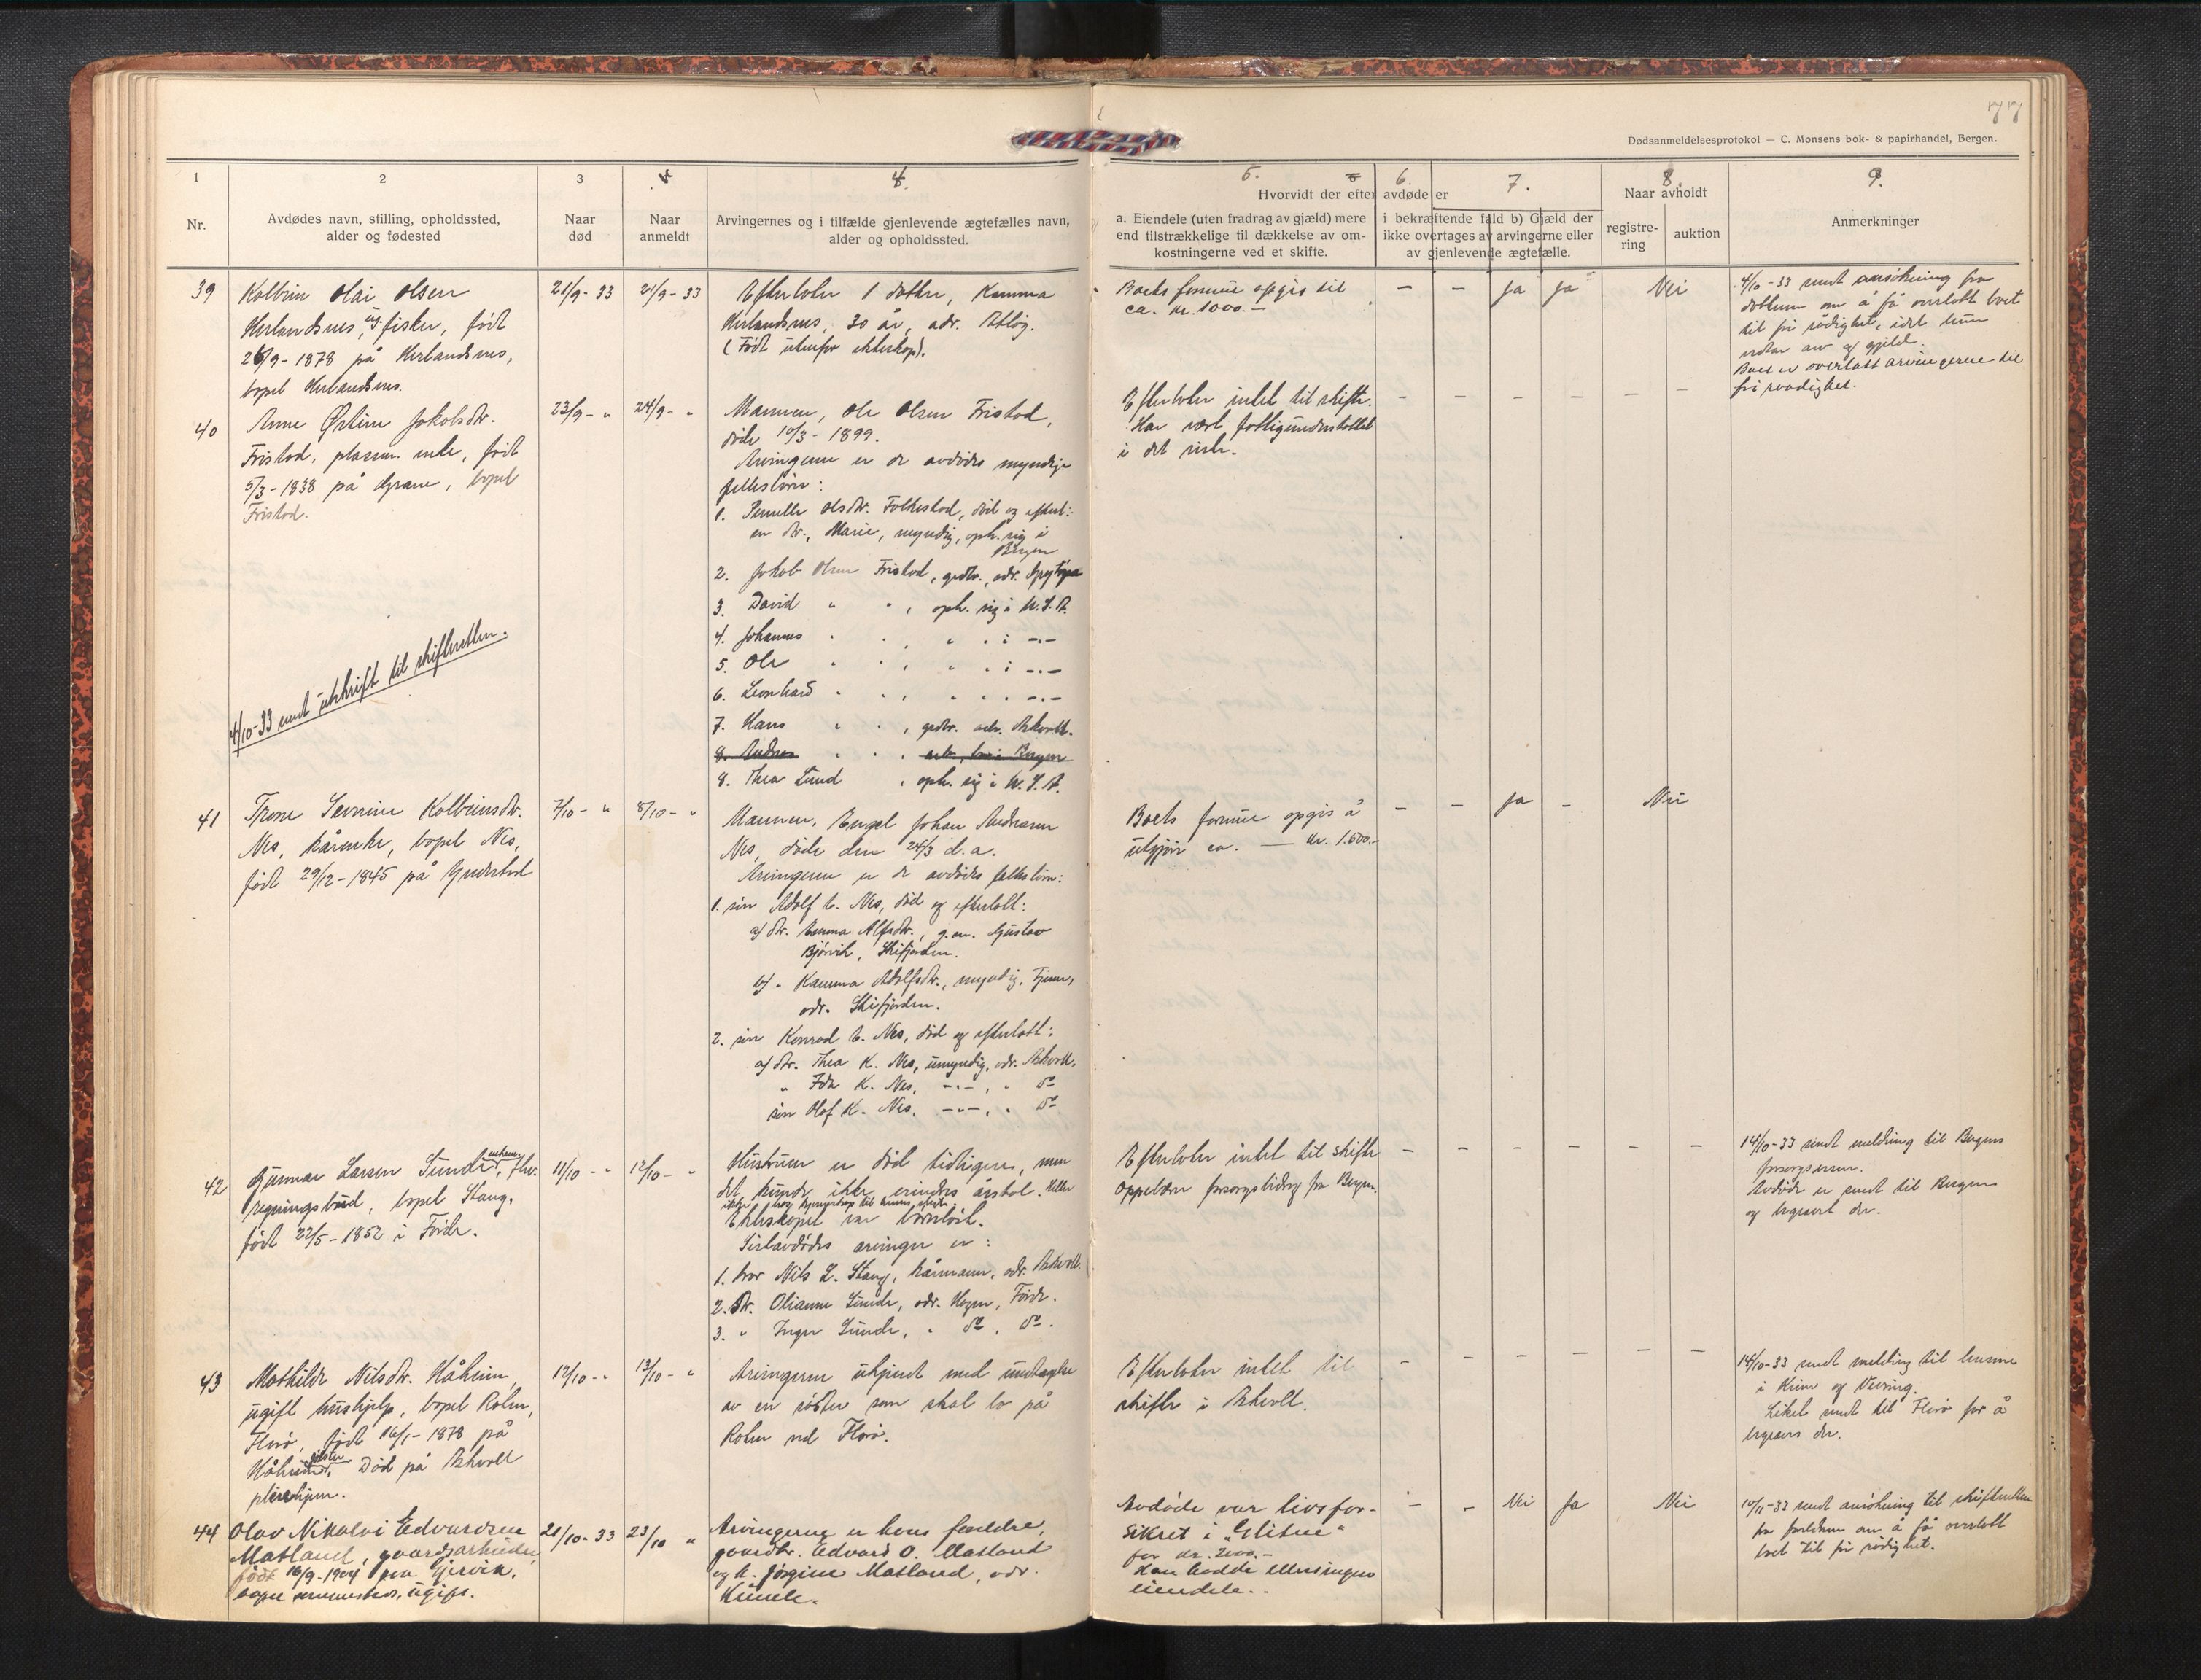 77
Dødsanmeldelsesprotokol — C. Monsens bok- & papirhandel, Bergen.
1
2
3
4.
5.
6.
7.
8.
9.
Nr.
Avdødes navn, stilling, opholdssted,
alder og fødested
Naar
død
Naar
anmeldt
Arvingernes og i tilfælde gjenlevende ægtefælles navn,
alder og opholdssted.
Hvorvidt der efter avdøde er
a. Eiendele (uten fradrag av gjæld) mere
end tilstrækkelige til dækkelse av om-
kostningerne ved et skifte.
i bekræftende fald b) Gjæld der
ikke overtages av arvingerne eller
av gjenlevende ægtefælle.
Naar avholdt
registre-
ring
auktion
Anmerkninger
39
Kolbein Olai Olsen
Herlandsnes, ug. fisker, født
26/9-1878 på Herlandsnes,
bopel Herlandsnes.
21/9-33
21/9-33
Efterlater 1 datter, Kamma
Herlandsnes, 30 år, adr. Atløy.
(Født utenfor ekteskap).
Boets formue opgis til
ca. kr. 1000.—
— — ja ja
Nei
4/10-33 sendt ansökning fra
datteren om å få overlatt boet
til fri rådighet, idet hun
vedtar arv og gjeld.
Boet er overlatt arvingerne til
fri raadighet.
40
Anne Østine Jakobsdtr.
Fristad, plassm. enke, født
5/3-1838 på Grane, bopel
Fristad.
4/10-33 sendt utskrift til skifteretten.
23/9- "
24/9- "
Mannen, Ole Olsen Fristad,
døde 10/3-1899.
Arvingene er de avdødes myndige
fellesbarn:
1. Pernille Olsdtr. Folkestad, død og efterl.:
en dtr., Marie, myndig, oph. sig i
Bergen
2. Jakob Olsen Fristad, grdbr., adr.
3. David " " , oph. sig i U.S.A.
4. Johannes " " , " " i —"—
5. Ole " " , " " i —"—
6. Leonhard " " , " " —"—
7. Hans " " , grdbr. adr. Askvoll.
8. Andreas " " , arb., bor i Bergen
8. Thea Lund , oph. sig i U.S.A.
Efterlater intet til skifte.
Har vært fattigunderstøttet
i det siste.
— — — — — —
41
Trone Severine Kolbeinsdtr.
Nes, kårenke, bopel Nes,
født 29/12-1845 på Yndestad
7/10- "
8/10- "
Mannen, Engel Johan Andreassen
Nes, døde den 24/3 d.a.
Arvingene er de avdødes fellesbarn:
1. sønn Adolf E. Nes, død og efterlatt:
a) dtr. Emma Alfsdtr., g.m. Gustav
Bjørvik, Skifjorden.
b) " Kamma Adolfsdtr., myndig,
adr. Skifjorden.
2. sønn Konrad E. Nes, død og efterlatt:
a) dtr. Thea K. Nes, umyndig, adr. Askvoll.
" Ida K. Nes, —"—, " do
sønn Olaf K. Nes, —"—, " do
Boets formue opgis å
utgjøre ca. — kr. 1.600.-
— — ja —
Nei
42
Gunnar Larsen Sunde, enkem., fhv.
regningsbud, bopel Stang,
født 22/5-1852 i Førde.
11/10- "
12/10- "
Hustruen er død tidligere, men
det kunde ikke erindres årstal. Heller
ikke
Ekteskapet var barnløst.
Sistavdødes arvinger er:
1. bror Nils L. Stang, kårmann, adr. Askvoll.
2. dtr. Olianne Sunde, adr. Hagen, Førde.
3. " Inger Sunde, " do, do.
Efterlater intet til skifte
Oppebar forsorgsbidrag fra Bergen.
— — — — — —
14/10-33 sendt meldring til Bergens
forsorgsvesen.
Avdøde er sendt til Bergen
og begravet der.
43
Mathilde Nilsdtr. Håheim
ugift hushjelp, bopel Rolen,
Florø, født 16/1-1878 på
Håheim, Jølster. Død på Askvoll
pleiehjem.
12/10- "
13/10- "
Arvingene ukjent med undtagelse
av en søster som skal bo på
Rolen ved Florø.
Efterlater intet til
skifte i Askvoll.
— — — — — —
14/10-33 sendt melding til lensmennene
i Kinn og Vevring.
Liket sendt til Florø for å
begraves der.
44
Olav Nikolai Edvardsen
Matland, gaardsarbeider
født 16/9-1904 paa Gjervik,
bopel sammesteds, ugift.
21/10-33
23/10 "
Arvingerne er hans foreldre,
gaardbr. Edvard O. Matland
og h. Jørgine Matland, adr.
Avdøde var livsfor-
sikret i "Glitne"
for kr. 2000.-
Han hadde ellers ingen
eiendele.
— — Nei Ja
Nei
10/11-33 sendt ansökning til skifteretten
fra foreldrene om å få overlatt
boet til fri rådighet.